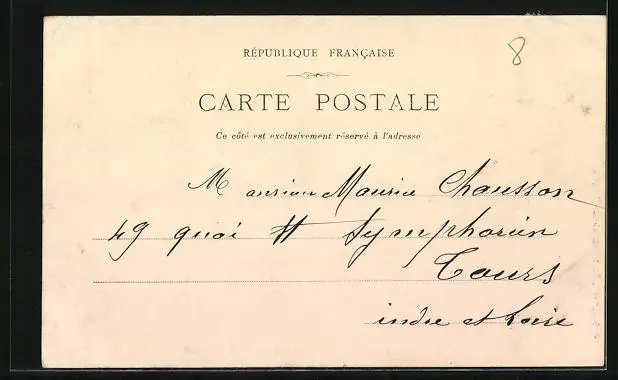 8
RÉPUBLIQUE FRANÇAISE
CARTE POSTALE
Ce côté est exclusivement réservé à l'adresse
Monsieur Maurice Chausson
49 quai St Symphorien
Tours
indre et Loire